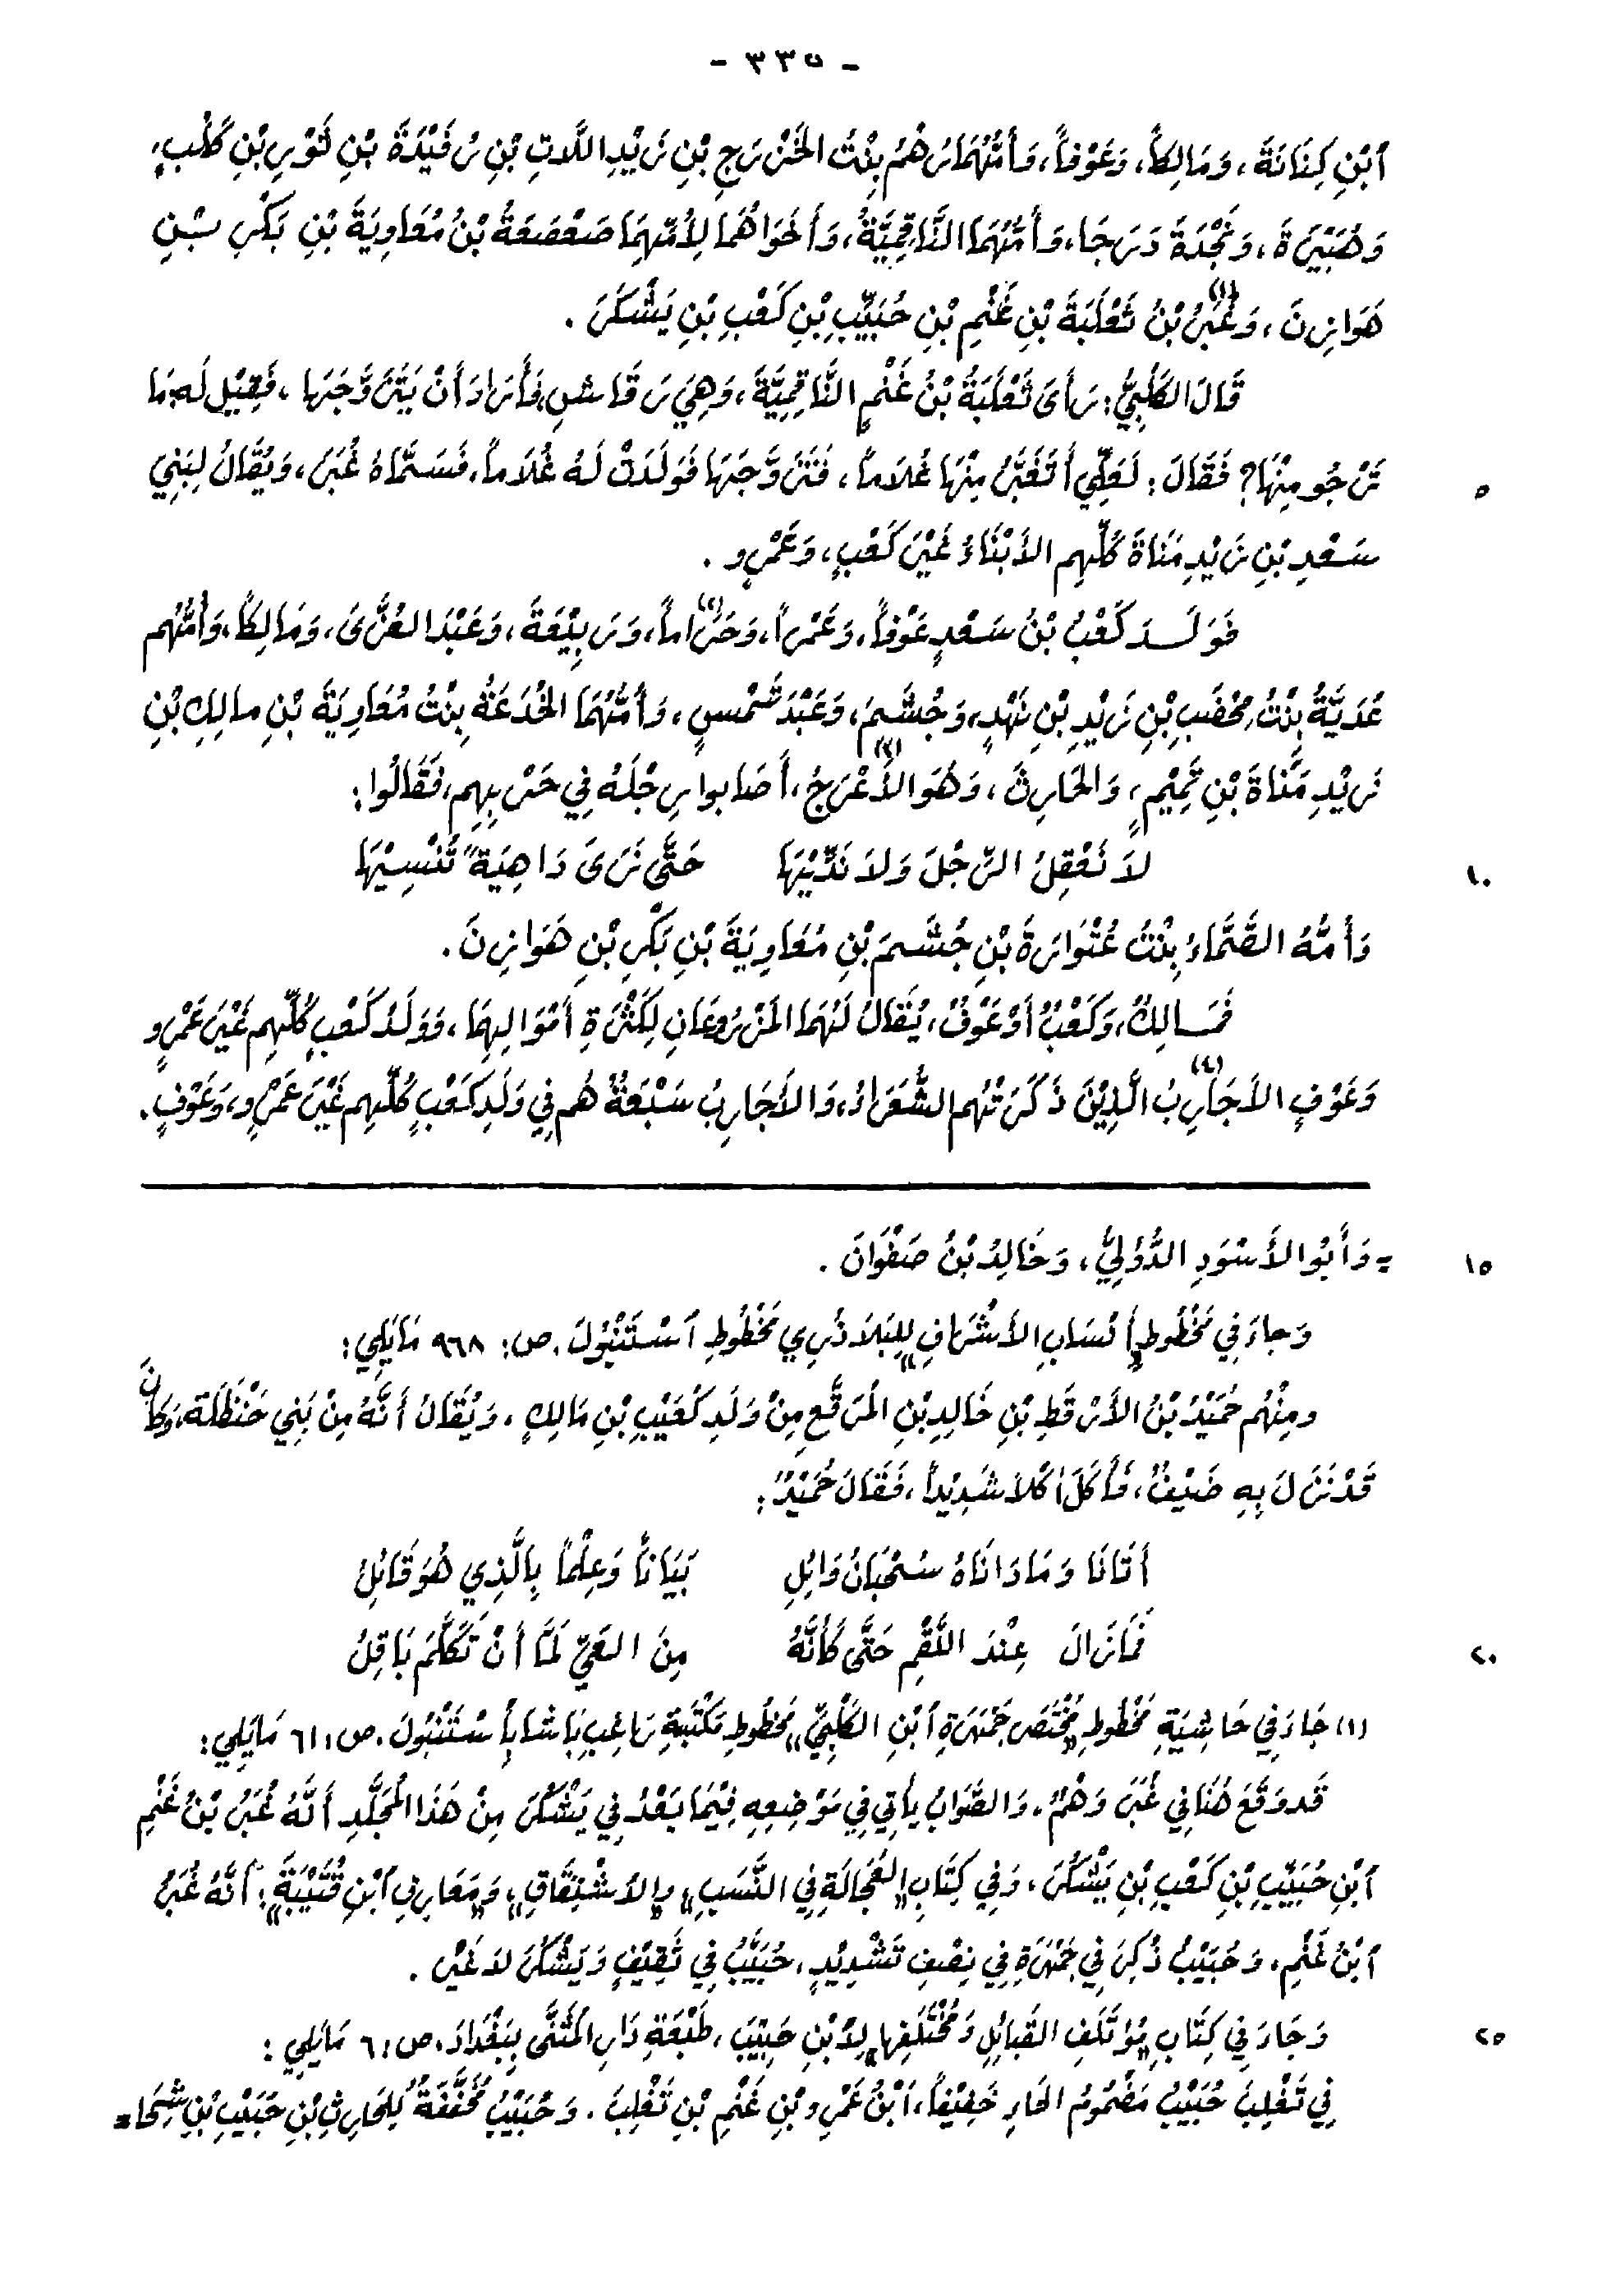 - ٣٣٥ -
ٱبْنِ كِنَانَةَ، وَمَالِكاً، وَعَوْفاً، وَأُمُّهُمَا رُهْمُ بِنْتُ الخَزْرَجِ بْنِ زَيْدِ اللَّاتِ بْنِ رُفَيْدَةَ بْنِ ثَوْرِ بْنِ كَلْبٍ،
وَهُبَيْرَةَ، وَنَجْدَةَ دَرَجَا، وَأُمُّهُمَا النَّاقِمِيَّةُ، وَأَخَوَاهُمَا لِأُمِّهِمَا صَعْصَعَةُ بْنُ مُعَاوِيَةَ بْنِ بَكْرِ بْنِ
هَوَازِنَ، وَغُبَرُ(١) بْنُ ثَعْلَبَةَ بْنِ غَنْمِ بْنِ حُبَيِّبِ بْنِ كَعْبِ بْنِ يَشْكُرَ.
قَالَ الكَلْبِيُّ: رَأَىَ ثَعْلَبَةُ بْنُ غَنْمٍ النَّاقِمِيَّةَ، وَهِيَ رَقَاشِ، فَأَرَادَ أَنْ يَتَزَوَّجَهَا، فَقِيْلَ لَهُ: مَا
تَرْجُو مِنْهَا؟ فَقَالَ: لَعَلِّي أَتَغَبَّرُ مِنْهَا غُلَاماً، فَتَزَوَّجَهَا فَوَلَدَتْ لَهُ غُلَاماً، فَسَمَّاهُ غُبَرَ، وَيُقَالُ لِبَنِي
٥
سَعْدِ بْنِ زَيْدِ مَنَاةَ كُلِّهِم الأَبْنَاءُ غَيْرَ كَعْبٍ، وَعَمْرٍو.
فَوَلَدَ كَعْبُ بْنُ سَعْدٍ عَوْفاً، وَعَمْراً، وَحَرَاماً(٢)، وَرَبِيْعَةَ، وَعَبْدَ العُزَّىَ، وَمَالِكاً، وَأُمُّهُم
عُدَيَّةُ بِنْتُ مِخْضَبِ بْنِ زَيْدِ بْنِ نَهْدٍ، وَجُشَمَ، وَعَبْدَ شَمْسٍ، وَأُمُّهُمَا الخُدَعَةُ بِنْتُ مُعَاوِيَةَ بْنِ مالِكِ بْنِ
زَيْدِ مَنَاةَ بْنِ تَمِيْمٍ، وَالحَارِثَ، وَهُوَ الأَعْرَجُ(٣)، أَصَابوا رِجْلَهُ فِي حَرْبِهِم، فَقَالُوا:
لاَ نَعْقِلُ الرِّجْلَ وَلاَ نَدِّيْهَا حَتَّى نَرَىَ دَاهِيَةً تُنْسِيْهَا
١٠
وَأُمُّهُ الصَّمَّاءُ بِنْتُ عُتْوَارَةَ بْنِ جُشَمَ بْنِ مُعَاوِيَةَ بْنِ بَكْرِ بْنِ هَوَازِنَ.
فَمَالِكٌ، وَكَعْبٌ أَوْ عَوْفٌ، يُقَالُ لَهُمَا المَزْرُوعَانِ لِكَثْرَةِ أَمْوَالِهِمَا، فَوَلَدُ كَعْبٍ كُلِّهِم غَيْرَ عَمْرٍو
وَعَوْفٍ الأَجَارِبُ(٤) الَّذِيْنَ ذَكَرَتْهُم الشُّعَرَاءُ، وَالأَجَارِبُ سَبْعَةٌ هُم فِي وَلَدِ كَعْبٍ كُلِّهِم غَيْرَ عَمْرٍو، وَعَوْفٍ.
= وَأَبُو الأَسْوَدِ الدُّؤَلِيُّ، وَخَالِدُ بْنُ صَفْوَانَ.
١٥
وَجاءَ فِي مَخْطُوطِ «أَنْسَابِ الأَشْرَافِ» لِلبَلَاذُرِي مَخْطُوطِ ٱسْتَنْبُولَ. ص: ٩٦٨ مَايَلِي:
ومِنْهُم حُمَيْدُ بْنُ الأَرْقَطِ بْنِ خَالِدِ بْنِ المُرَقَّعِ مِنْ وَلَدِ كُعَيْبِ بْنِ مَالِكٍ. وَيُقَالُ أَنَّهُ مِنْ بَنِي حَنْظَلَةَ، وَكَانَ
قَدْ نَزَلَ بِهِ ضَيْفٌ، فَأَكَلَ أَكْلاً شَدِيْداً، فَقَالَ حُمَيْدٌ:
أَتَانَا وَمَا دَانَاهُ سَحْبَانُ وَائِلِ بَيَاناً وَعِلْماً بِالَّذِي هُوَ قَائِلُ
فَمَازَالَ عِنْدَ اللَّقْمِ حَتَّى كَأَنَّهُ مِنَ العَيِّ لَمَّا أَنْ تَكَلَّمَ بَاقِلُ
٢٠
(١) جَاءَ فِي حَاشِيَةِ مَخْطُوطِ «مُخْتَصَرِ جَمْهَرَةِ ٱبْنِ الكَلْبِيِّ» مَخْطُوطِ مَكْتَبَةِ رَاغِبِ بَاشَا بِٱسْتَنْبُولَ. ص: ٦١ مَايَلِي:
قَد وَقَعَ هُنَا فِي غُبَرَ وَهْمٌ. وَالصَّوَابُ يأتي فِي مَوْضِعِهِ فِيْمَا بَعْدُ فِي يَشْكُرَ مِنْ هَذَا المُجَلَّدِ أَنَّهُ غُبَرُ بْنُ غَنْمِ
ٱبْنِ حُبَيِّبِ بْنِ كَعْبِ بْنِ يَشْكُرَ، وَفِي كِتَابِ «العُجَالَةِ فِي النَّسَبِ» و«الاشْتِقَاقِ» وَ«مَعَارِفِ ٱبْنِ قُتَيْبَةَ»: أَنَّهُ غُبَرُ
ٱبْنُ غَنْمٍ. وَحُبَيْبُ ذُكِرَ فِي جَمْهَرَةِ فِي نِصْفِ تَشْدِيْدٍ، حُبَيِّبُ فِي ثَقِيْفٍ وَيَشْكُرَ لاَ غَيْرَ.
وَجَاءَ فِي كِتَابِ «مُؤتَلَفِ القَبائِلِ وَمُخْتَلَفِهَا» لِابْنِ حَبِيْبَ، طَبْعَةِ دَارِ المُثَنَّى بِبَغْدَادَ. ص: ٦ مَايَلِي:
٢٥
فِي تَغْلِبَ حُبَيْبُ مَضْمُومُ الحَاءِ خَفِيْفاً، ٱبْنُ عَمْرِو بْنِ غَنْمِ بْنِ تَغْلِبَ. وَحُبَيْبُ مُخَفَّفَةٌ لِلحَارِثِ بْنِ حُبَيْبِ بْنِ شِحَا=